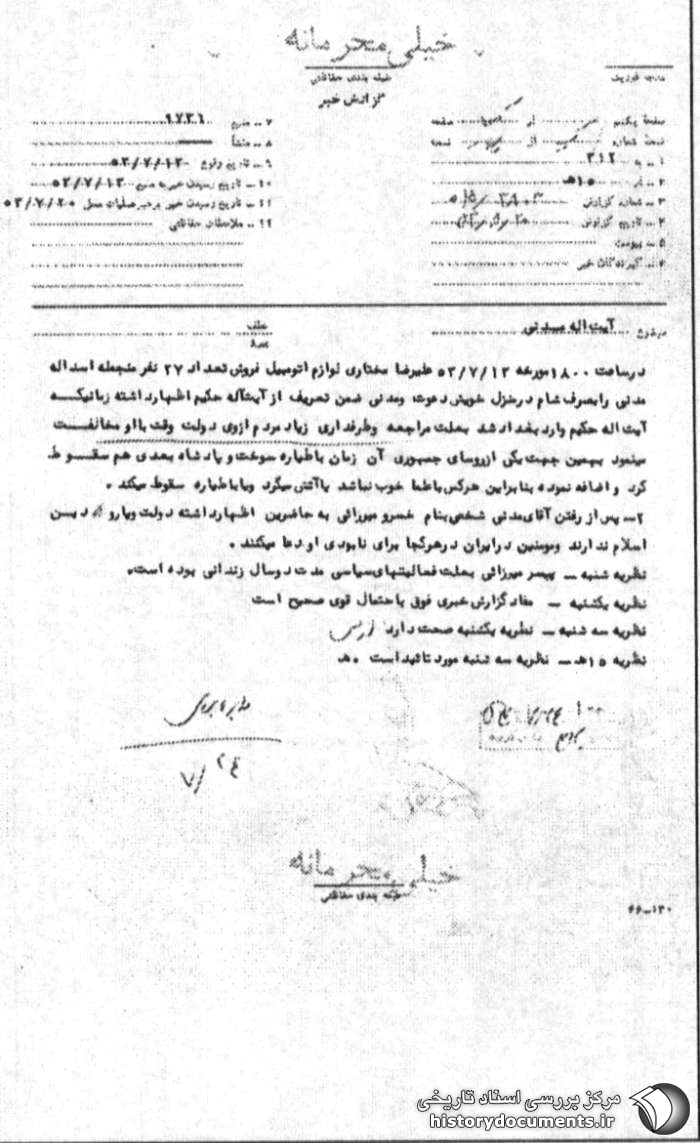 خیلی محرمانه
طبقه بندی حفاظتی
گزارش خبر
درجه فوریت
صفحه یکم از صفحه
نسخه شماره از نسخه
۱ – به ۳۱۲
۲ – از ۱۵هـ
۳ – شماره گزارش
۴ – تاریخ گزارش
۵ – پیوست
۶ – گیرندگان خبر
۷ – منبع ۹۷۳۱
۸ – منشأ
۹ – تاریخ وقوع ۵۳/۷/۱۲
۱۰ – تاریخ رسیدن خبر به منبع ۵۳/۷/۱۲
۱۱ – تاریخ رسیدن خبر برهبر عملیات محل ۵۳/۷/۲۰
۱۲ – ملاحظات حفاظتی
موضوع آیت اله مدنی
عطف
درساعت ۱۸۰۰ مورخه ۵۳/۷/۱۲ علیرضا مختاری لوازم اتومبیل فروش تعداد ۲۷ نفر منجمله اسداله
مدنی رابصرف شام درمنزل خویش دعوت ومدنی ضمن تعریف ازآیت‌اله حکیم اظهارداشته زمانیکه
آیت اله حکیم وارد بغداد شد بعلت مراجعه وطرفداری زیاد مردم ازوی دولت وقت بااو مخالفت
مینمود بهمین جهت یکی ازروسای جمهوری آن زمان باطیاره سوخت و پادشاه بعدی هم سقوط
کرد و اضافه نموده بنابراین هرکس باعلما خوب نباشد یاآتش میگیرد ویاباطیاره سقوط میکند .
۲– پس از رفتن آقای مدنی شخصی بنام خسرو میرزائی به حاضرین اظهارداشته دولت ویارو دین
اسلام ندارند ومومنین درایران درهرکجا برای نابودی او دعا میکنند .
نظریه شنبه – پسر میرزائی بعلت فعالیتهای سیاسی مدت دوسال زندانی بوده است.
نظریه یکشنبه – مفاد گزارش خبری فوق باحتمال قوی صحیح است
نظریه سه شنبه – نظریه یکشنبه صحت دارد
نظریه ۱۵هـ – نظریه سه شنبه مورد تائید است . هـ
۷/۲۴
خیلی محرمانه
طبقه بندی حفاظتی
۶۶–۱۳۰
مرکز بررسی اسناد تاریخی
historydocuments.ir